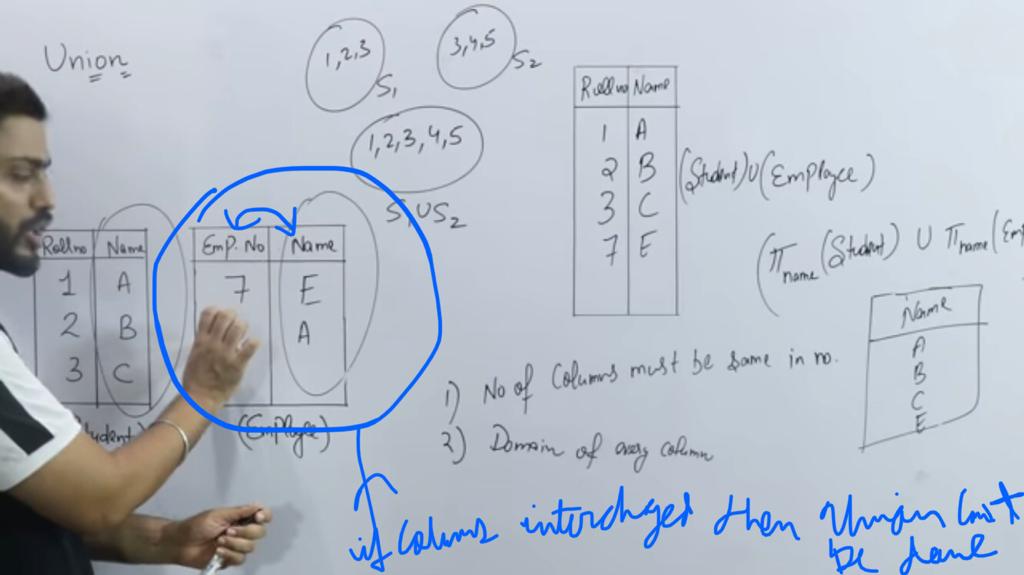 Union
1,2,3
S1
3,4,5
S2
1,2,3,4,5
S1 ∪ S2
Rollno Name
1 A
2 B
3 C
(Student)
Emp. No Name
7 E
A
(Employee)
Rollno Name
1 A
2 B
3 C
7 E
(Student) ∪ (Employee)
(π name (Student) ∪ π name (Em
Name
A
B
C
E
1) No of Columns must be same in no.
2) Domain of every column
if columns interchaged then Union
be done